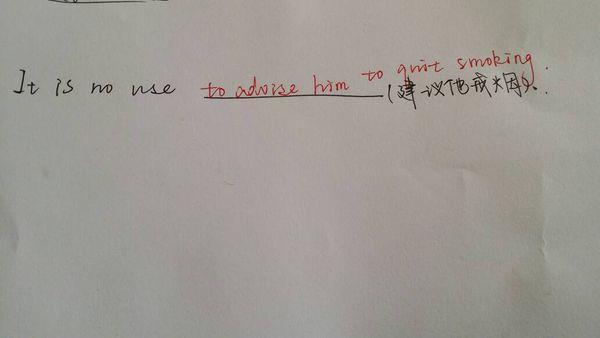 It is no use to advise him to quit smoking.
(建议他戒烟).